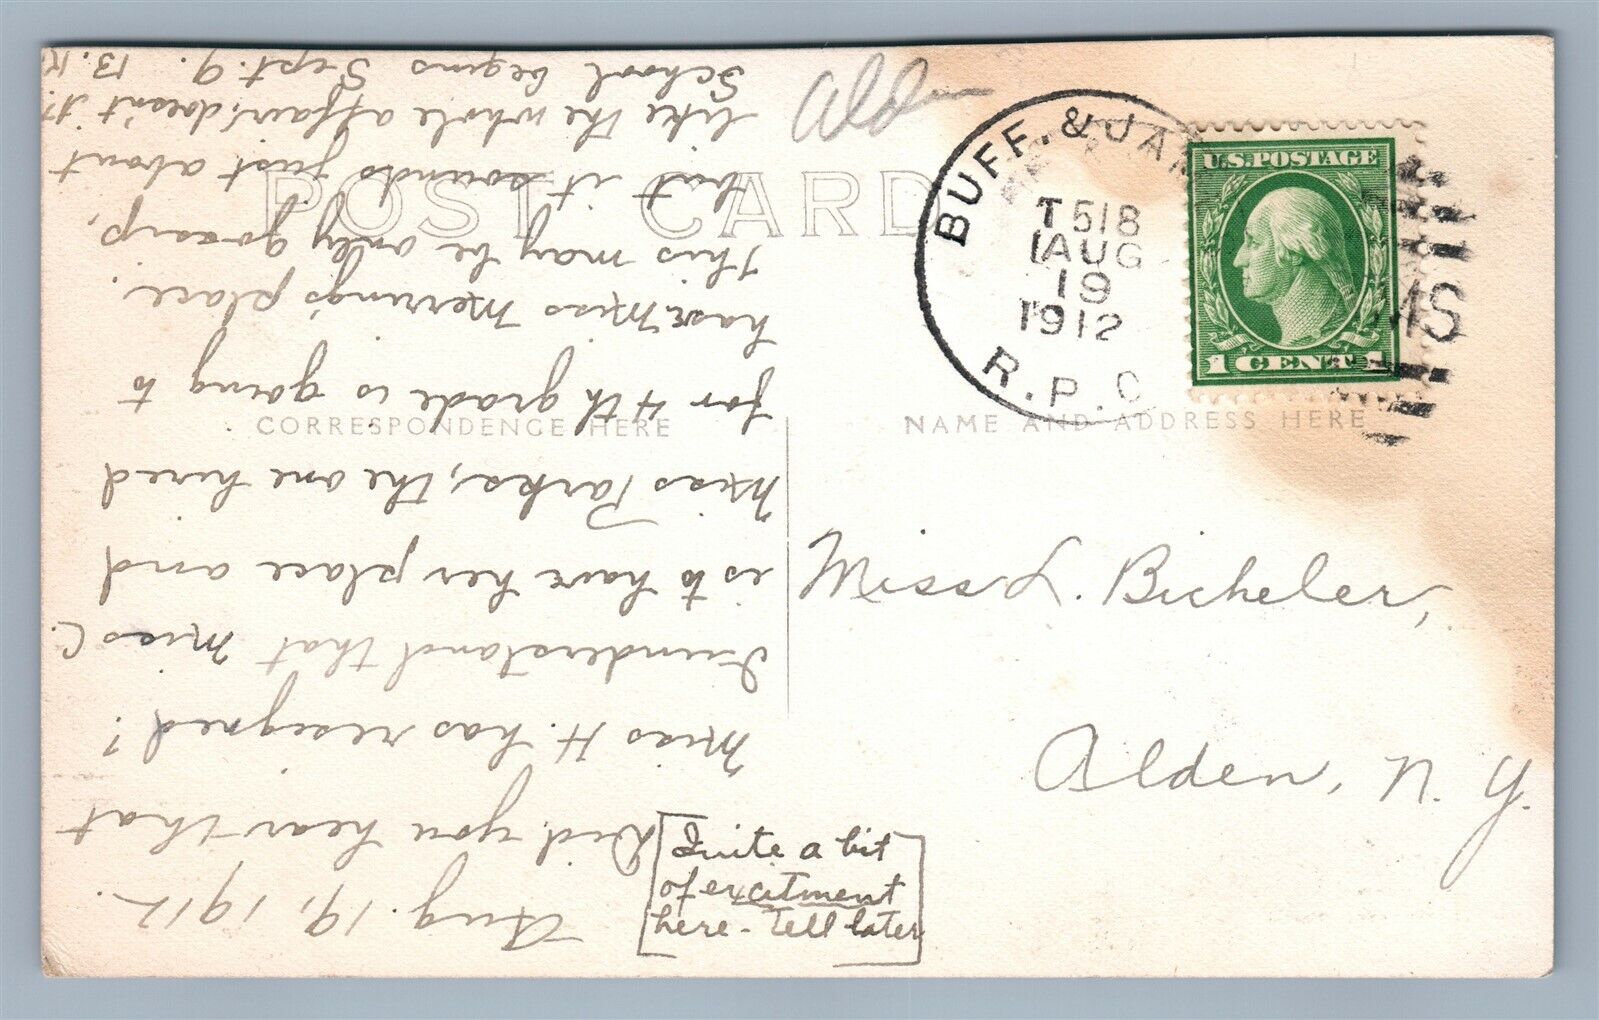 Alden
BUFF. & JAM
T 518
AUG
19
1912
R.P.O.
U.S. POSTAGE
1 CENT 1
MS
POST CARD
CORRESPONDENCE HERE
NAME AND ADDRESS HERE
Miss L. Bicheler,
Alden, N. Y.
Quite a bit
of excitment
here - tell later
Aug. 19, 1912.
Did you hear that
Miss H. has resigned?
I understand that Miss C.
is to have her place and
Miss Parks, the one hired
for 4th grade is going to
have Miss Merring's place.
This may be only gossip,
but it sounds just about
like the whole affair, doesn't it?
School begins Sept. 9. B.K.